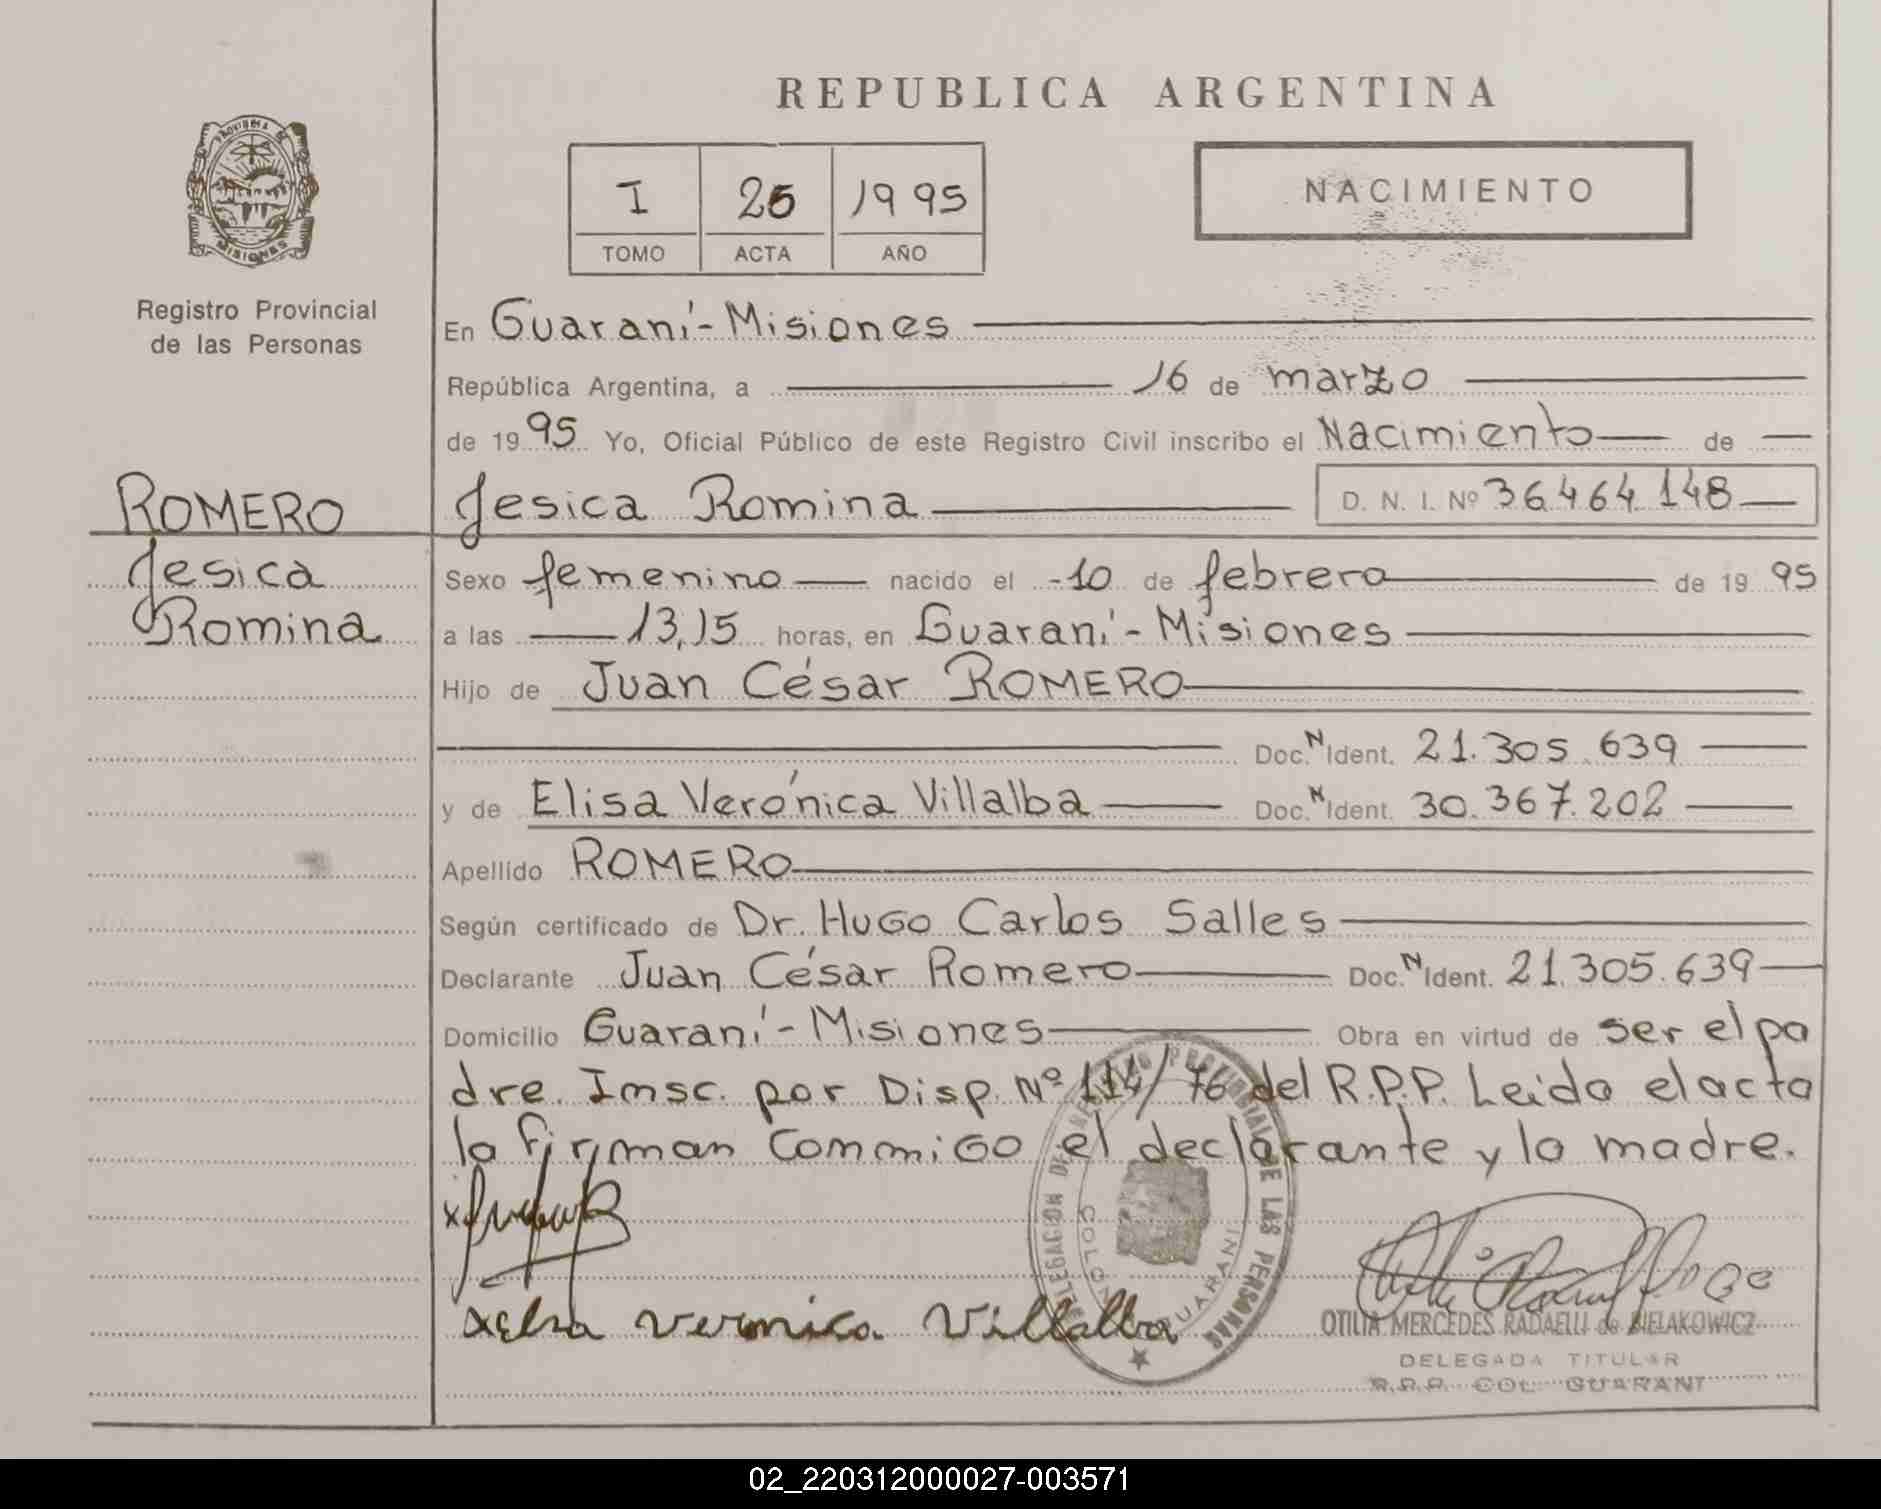 REPUBLICA ARGENTINA
PROVINCIA DE
MISIONES
Registro Provincial
de las Personas
I 25 1995
TOMO ACTA AÑO
NACIMIENTO
En Guaraní-Misiones
República Argentina, a 16 de marzo
de 1995 Yo, Oficial Público de este Registro Civil inscribo el Nacimiento de
ROMERO
Jesica
Romina
Jesica Romina D. N. I. Nº 36.464.148
Sexo femenino nacido el -10 de febrero de 19 95
a las 13,15 horas, en Guaraní-Misiones
Hijo de Juan César ROMERO
Doc. N Ident. 21.305.639
y de Elisa Verónica Villalba Doc. N Ident. 30.367.202
Apellido ROMERO
Según certificado de Dr. Hugo Carlos Salles
Declarante Juan César Romero Doc. N Ident. 21.305.639
Domicilio Guaraní-Misiones Obra en virtud de ser el pa
dre. Imsc. por Disp. Nº 114/76 del R.P.P. Leido el acta
la firman commigo el declarante y la madre.
DELEGACION DEL REGISTRO PROVINCIAL DE LAS PERSONAS
COLONIA GUARANI
Veronica Villalba
OTILIA MERCEDES RADAELLI de BIELAKOWICZ
DELEGADA TITULAR
R.P.P. COL. GUARANI
02_220312000027-003571